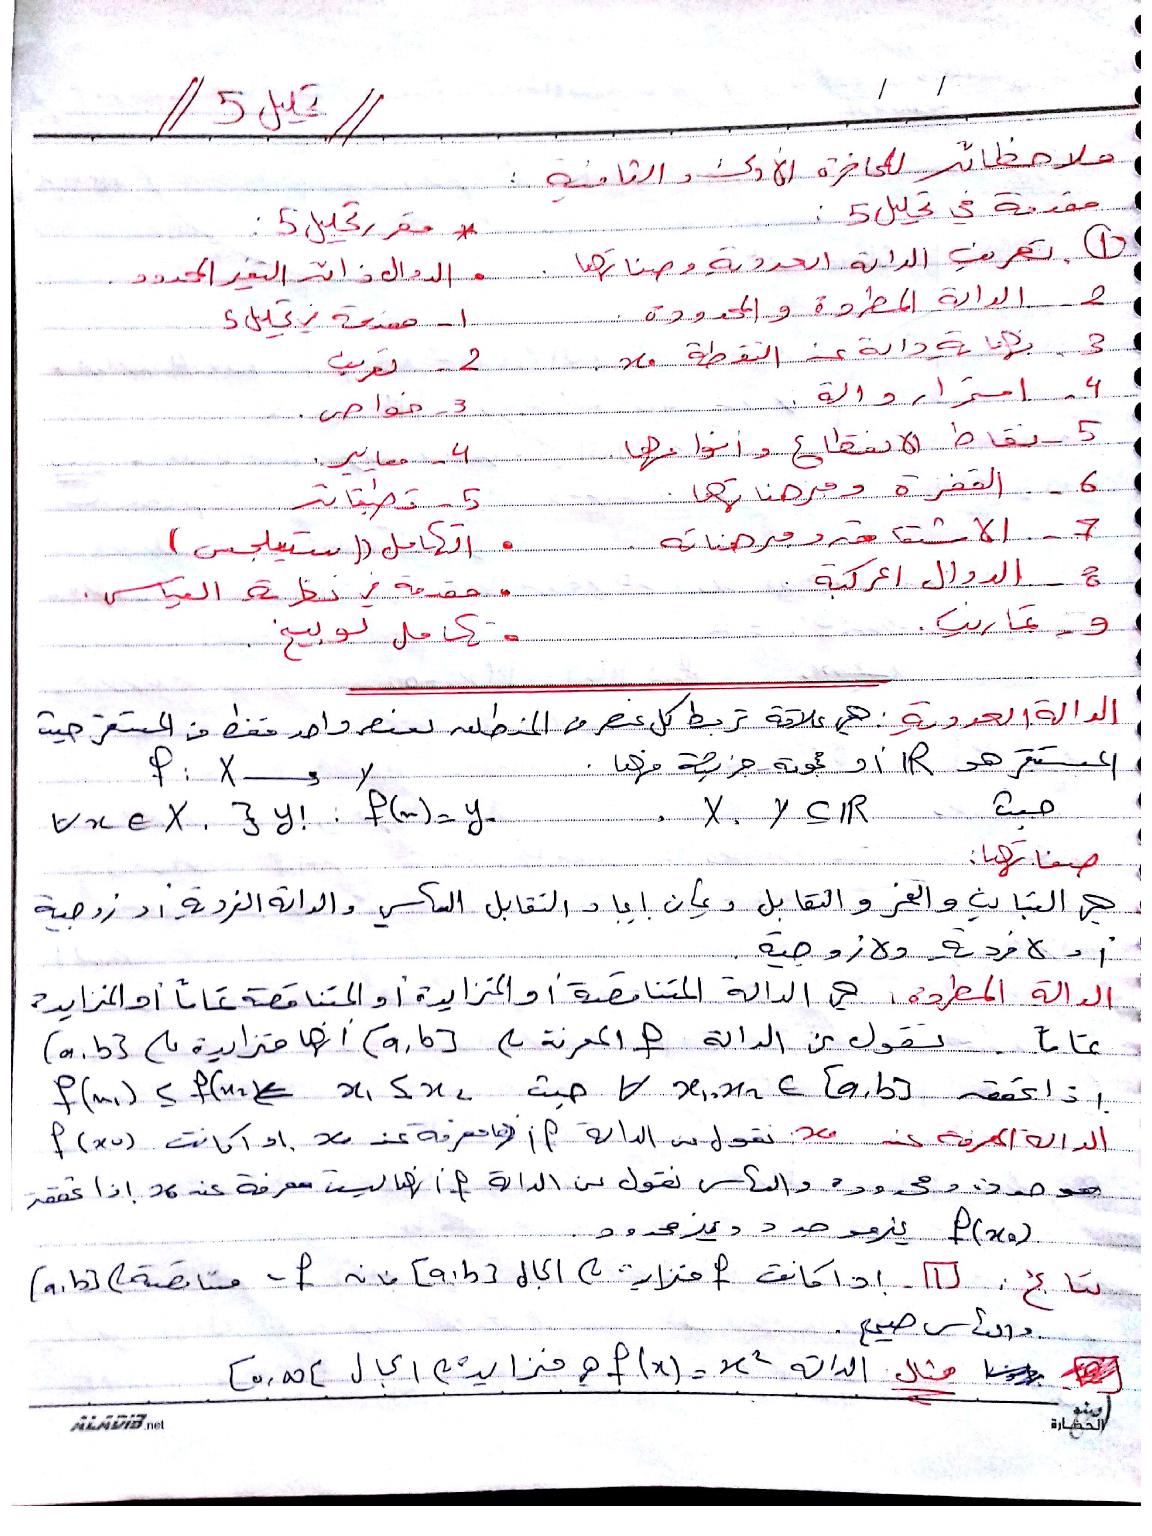 // تحليل 5 //
/ /
ملاحظات للمحاضرة الأولى والثانية :
مقدمة في تحليل 5 :
① . تعريف الدالة العددية وصفاتها .
2 - الدالة المطردة والمحدودة .
3 . نهاية دالة عند النقطة x₀ .
4 - استمرار دالة .
5 - نقاط الانقطاع وأنواعها .
6 - القفزة ومبرهناتها .
7 - الاشتقاق ومبرهناته .
8 - الدوال المركبة .
9 - تمارين .
* مقرر تحليل 5 :
• الدوال ذات التغير المحدود .
1 - مقدمة في تحليل 5
2 - تعريف
3 - خواص .
4 - معايير .
5 - تطبيقات
• التكامل ( ستيلجس )
• مقدمة في نظرية القياس .
• تكامل لوبيغ .
الدالة العددية : هي علاقة تربط كل عنصر من المنطلق بعنصر واحد فقط من المستقر حيث
المستقر هو ℝ أو مجموعة جزئية منها . f : X → Y
حيث X , Y ⊆ ℝ . ∀x ∈ X , ∃ y! : f(x) = y
صفاتها :
هي التباين والغمر والتقابل وإمكان إيجاد التقابل العكسي والدالة الفردية أو زوجية
أو لا فردية ولا زوجية .
الدالة المطردة : هي الدالة المتناقصة أو المتزايدة أو المتناقصة تماماً أو المتزايدة
تماماً . نقول عن الدالة f المعرفة على [a,b] أنها متزايدة على [a,b]
إذا تحقق ∀ x₁,x₂ ∈ [a,b] حيث x₁ ≤ x₂ ⇐ f(x₁) ≤ f(x₂)
الدالة المعرفة عند x₀ : نقول عن الدالة f أنها معرفة عند x₀ إذا كانت f(x₀)
موجودة ومحدودة والعكس نقول عن الدالة f أنها ليست معرفة عند x₀ إذا تحقق
f(x₀) غير موجود وغير محدود .
نتائج : [1] - إذا كانت f متزايدة على المجال [a,b] فإنه -f متناقصة على [a,b]
والعكس صحيح .
مثال الدالة f(x) = x² هي متزايدة على المجال [0,∞[
ALADIB.net
الحضارة